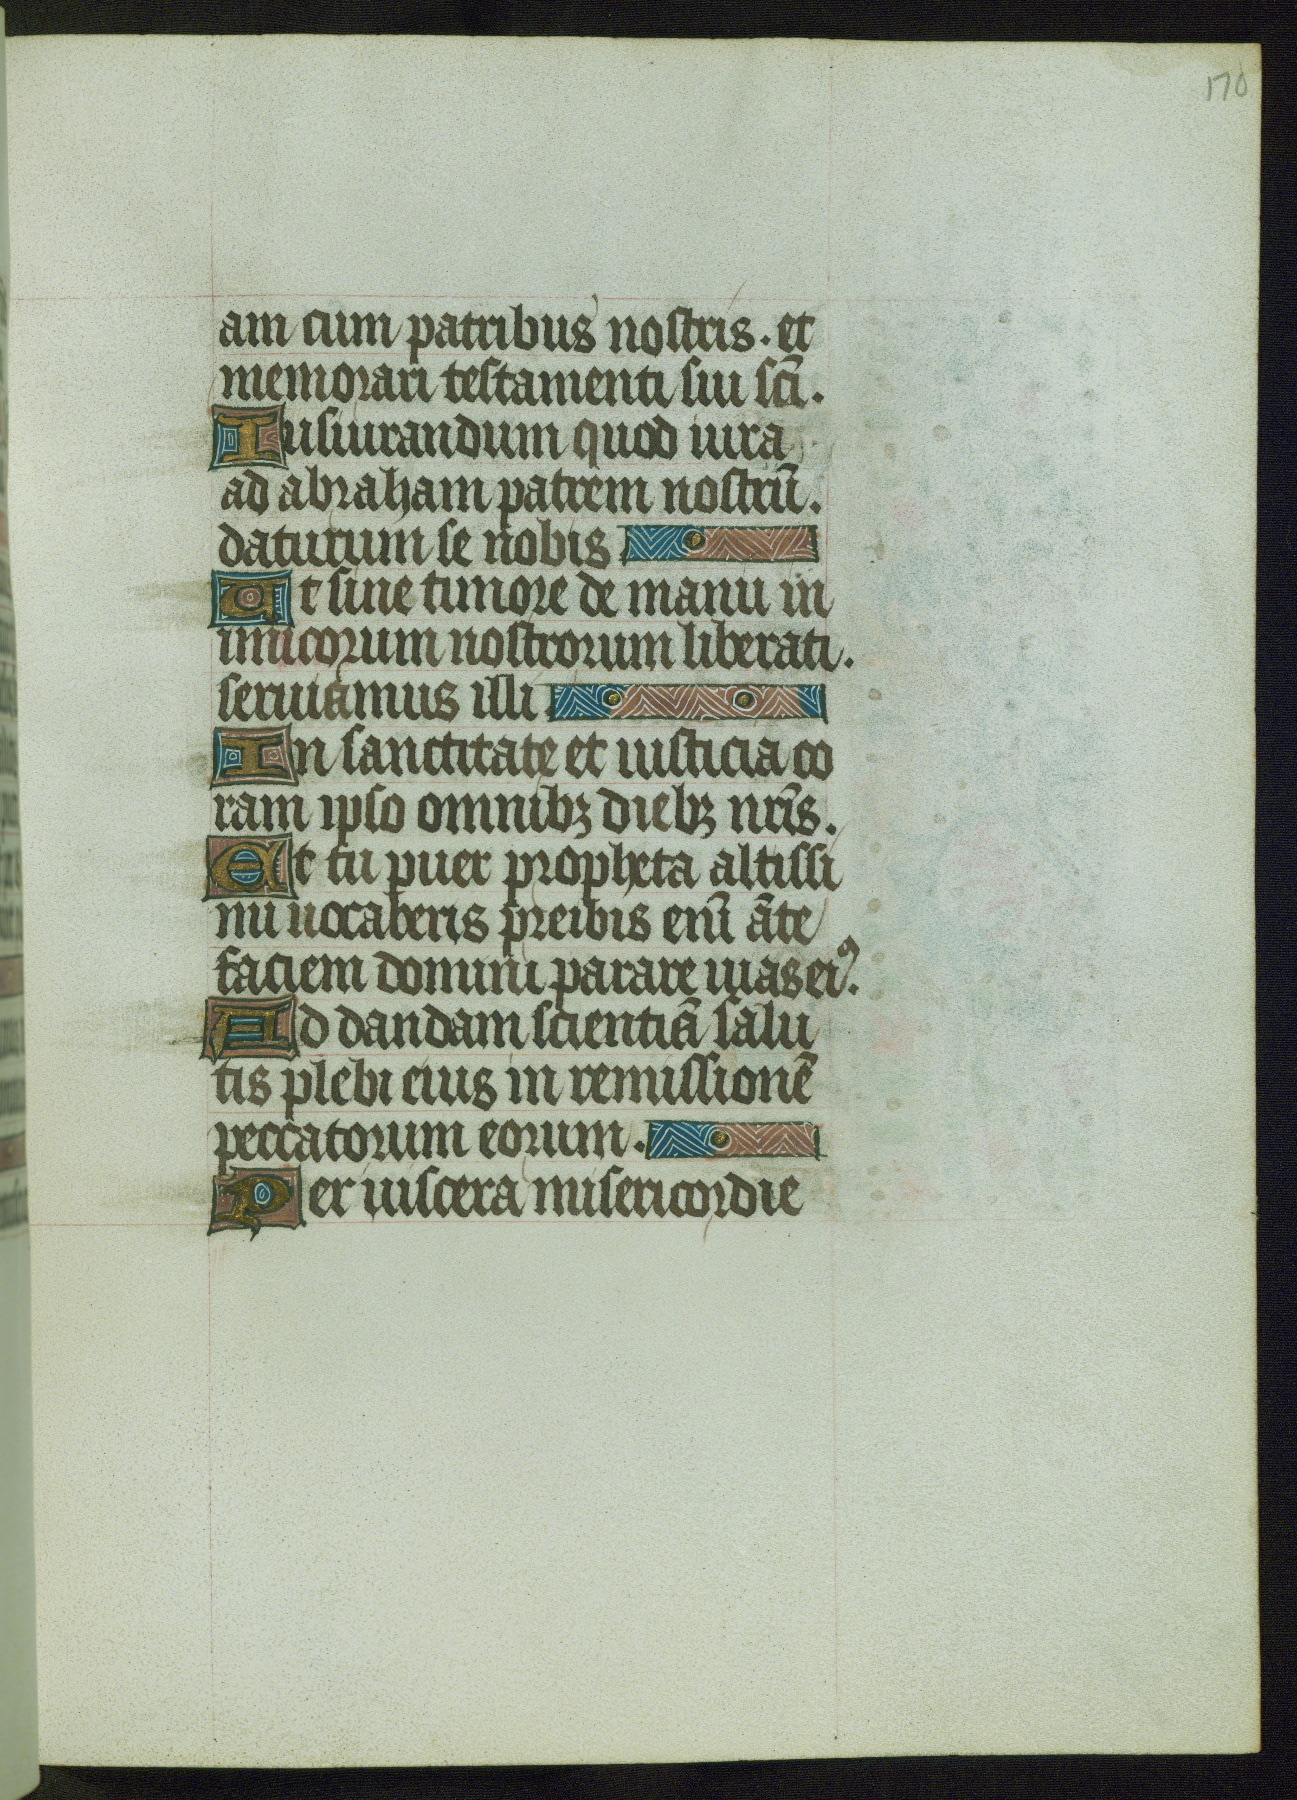 170
am cum patribus nostris. et
memorari testamenti sui sc̄i.
Iusiurandum quod iura
ad abraham patrem nostrū.
daturum se nobis
Ut sine timore de manu in
imicorum nostrorum liberati.
seruiamus illi
In sanctitate et iusticia co
ram ipso omnibꝫ diebꝫ nr̄is.
Et tu puer propheta altissi
mi uocaberis preibis eni̅ a̅te
faciem domini parare uias eiꝰ.
Ad dandam scientiā salu
tis plebi eius in remissionē
peccatorum eorum.
Per uiscera misericordie